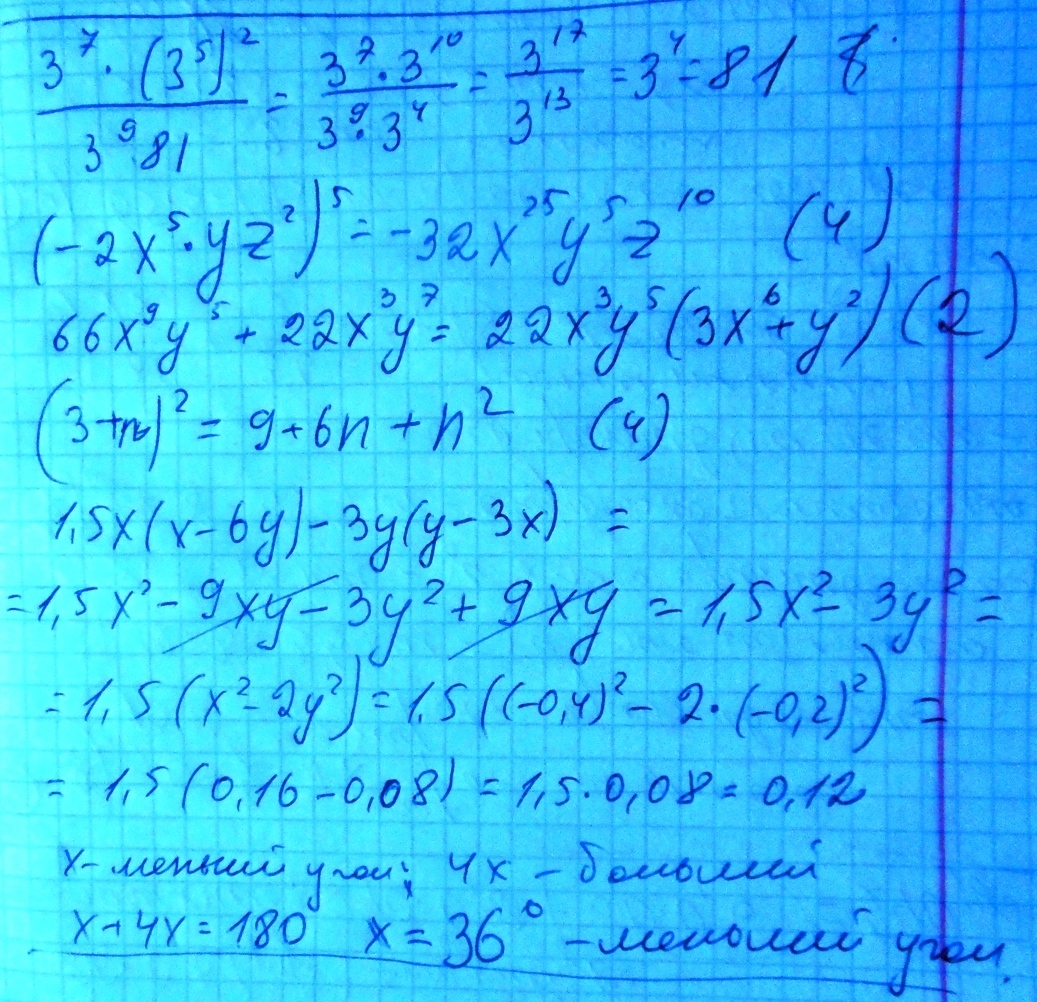 3^7 · (3^5)^2 / 3^9 81 = 3^7 · 3^10 / 3^9 · 3^4 = 3^17 / 3^13 = 3^4 = 81
(-2x^5 · yz^2)^5 = -32x^25 y^5 z^10 (4)
66x^9y^5 + 22x^3y^7 = 22x^3y^5(3x^6+y^2) (2)
(3+n)^2 = 9+6n+n^2 (4)
1,5x(x-6y)-3y(y-3x) =
=1,5x^2 - 9xy - 3y^2 + 9xy = 1,5x^2 - 3y^2 =
= 1,5(x^2-2y^2) = 1,5((-0,4)^2 - 2·(-0,2)^2) =
= 1,5(0,16-0,08) = 1,5·0,08 = 0,12
x-меньший угол; 4x - больший
x+4x=180° x=36° - меньший угол.